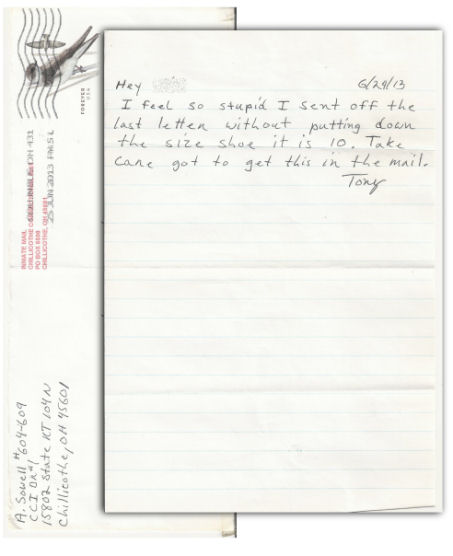 Hey
6/24/13
I feel so stupid I sent off the
last letter without putting down
the size shoe it is 10. Take
care got to get this in the mail.
Tony
FOREVER
USA
OH 431
25 JUN 2013 PM 5 L
INMATE MAIL
CHILLICOTHE
PO BOX 5500
CHILLICOTHE, OH
A. Sowell #604-609
CCI DR#1
15802 State RT 104N
Chillicothe, OH 45601